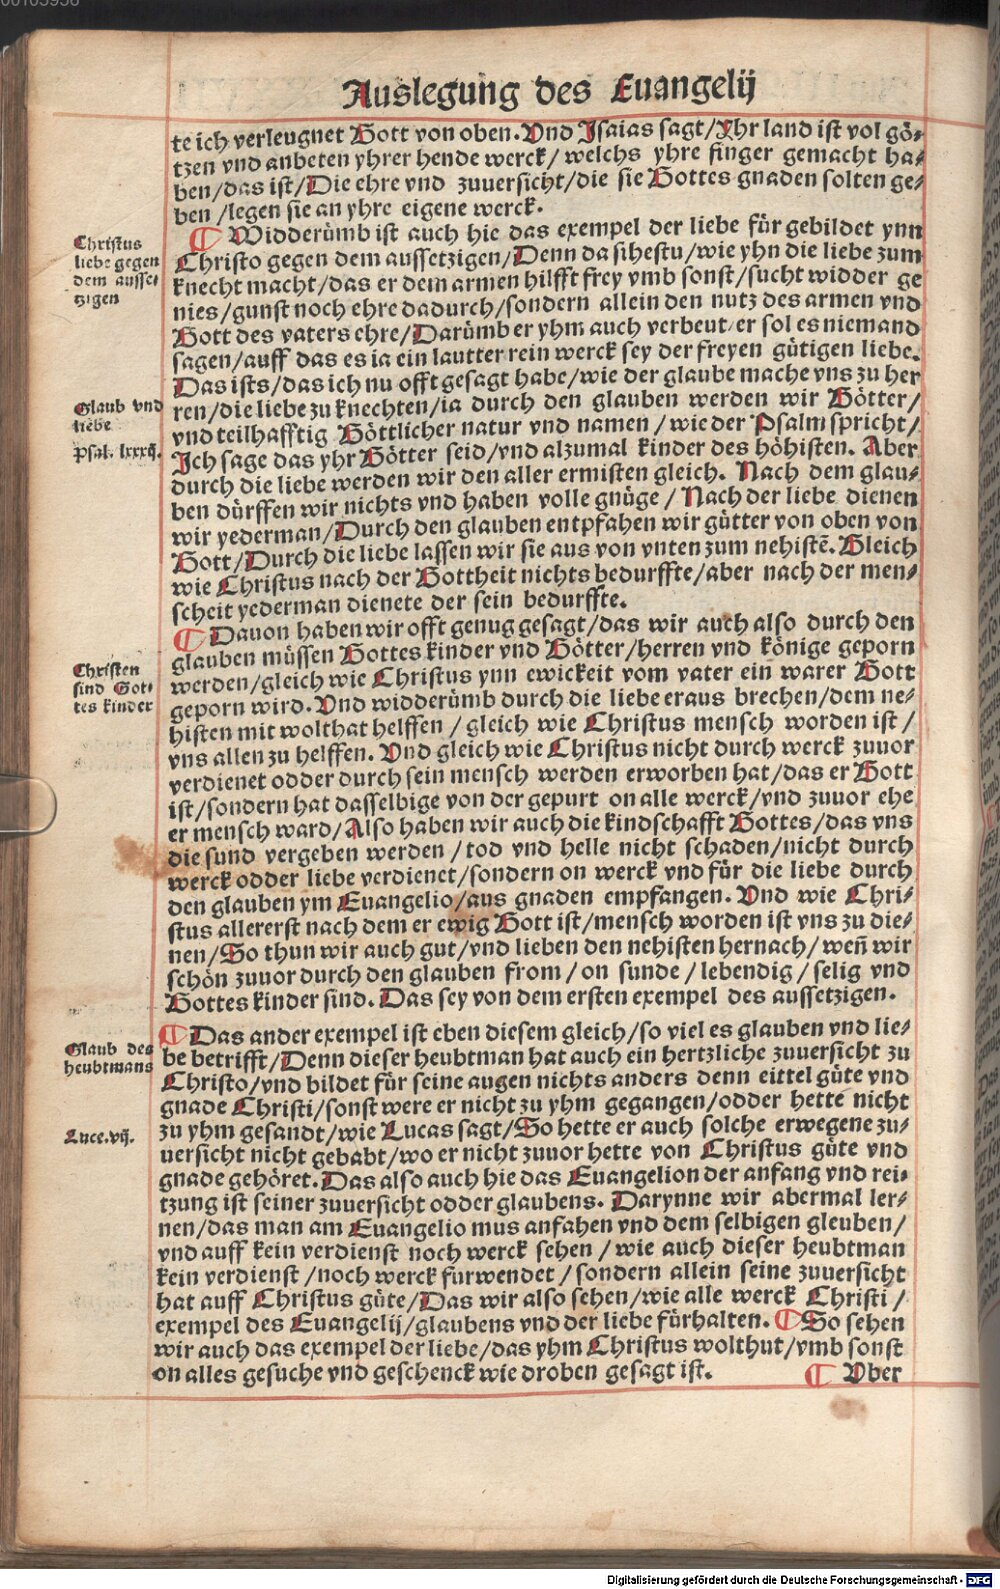 00105956
Auslegung des Euangelij
te ich verleugnet Gott von oben. Und Isaias sagt/Yhr land ist vol gö-
tzen vnd anbeten yhrer hende werck/ welchs yhre finger gemacht ha-
ben/das ist/Die ehre vnd zuuersicht/die sie Gottes gnaden solten ge-
ben/legen sie an yhre eigene werck.
Christus
liebe gegen
dem aussetzigen
¶ Widderümb ist auch hie das exempel der liebe für gebildet ynn
Christo gegen dem aussetzigen/Denn da sihestu/wie yhn die liebe zum
knecht macht/das er dem armen hilfft frey vmb sonst/sucht widder ge
nies/gunst noch ehre dadurch/sondern allein den nutz des armen vnd
Gott des vaters ehre/Darümb er yhm auch verbeut/er sol es niemand
sagen/auff das es ia ein lautter rein werck sey der freyen gütigen liebe.
Das ists/das ich nu offt gesagt habe/wie der glaube mache vns zu her
Glaub vnd
liebe
Psal. lxxxij.
ren/die liebe zu knechten/ia durch den glauben werden wir Götter/
vnd teilhafftig Göttlicher natur vnd namen/wie der Psalm spricht/
Ich sage das yhr Götter seid/vnd alzumal kinder des höhisten. Aber
durch die liebe werden wir den aller ermisten gleich. Nach dem glau-
ben dürffen wir nichts vnd haben volle gnüge/ Nach der liebe dienen
wir yederman/Durch den glauben entpfahen wir gütter von oben von
Gott/Durch die liebe lassen wir sie aus von vnten zum nehistē. Gleich
wie Christus nach der Gottheit nichts bedurffte/aber nach der men-
scheit yederman dienete der sein bedurffte.
¶ Dauon haben wir offt genug gesagt/das wir auch also durch den
Christen
sind Got-
tes kinder
glauben müssen Gottes kinder vnd Götter/herren vnd könige geporn
werden/gleich wie Christus ynn ewickeit vom vater ein warer Gott
geporn wird. Vnd widderümb durch die liebe eraus brechen/dem ne-
histen mit wolthat helffen/ gleich wie Christus mensch worden ist/
vns allen zu helffen. Vnd gleich wie Christus nicht durch werck zuuor
verdienet odder durch sein mensch werden erworben hat/das er Gott
ist/sondern hat dasselbige von der gepurt on alle werck/vnd zuuor ehe
er mensch ward/Also haben wir auch die kindschafft Gottes/das vns
die sund vergeben werden/tod vnd helle nicht schaden/nicht durch
werck odder liebe verdienet/sondern on werck vnd für die liebe durch
den glauben ym Euangelio/aus gnaden empfangen. Vnd wie Chri-
stus allererst nach dem er ewig Gott ist/mensch worden ist vns zu die-
nen/So thun wir auch gut/vnd lieben den nehisten hernach/weñ wir
schön zuuor durch den glauben from/on sunde/lebendig/selig vnd
Gottes kinder sind. Das sey von dem ersten exempel des aussetzigen.
Glaub des
heubtmans
¶ Das ander exempel ist eben diesem gleich/so viel es glauben vnd lie-
be betrifft/Denn dieser heubtman hat auch ein hertzliche zuuersicht zu
Christo/vnd bildet für seine augen nichts anders denn eittel güte vnd
gnade Christi/sonst were er nicht zu yhm gegangen/odder hette nicht
Luce.vij.
zu yhm gesandt/wie Lucas sagt/So hette er auch solche erwegene zu-
uersicht nicht gehabt/wo er nicht zuuor hette von Christus güte vnd
gnade gehöret. Das also auch hie das Euangelion der anfang vnd rei-
tzung ist seiner zuuersicht odder glaubens. Darynne wir abermal ler-
nen/das man am Euangelio mus anfahen vnd dem selbigen gleuben/
vnd auff kein verdienst noch werck sehen/wie auch dieser heubtman
kein verdienst/noch werck furwendet/sondern allein seine zuuersicht
hat auff Christus güte/Das wir also sehen/wie alle werck Christi/
exempel des Euangelij/glaubens vnd der liebe fürhalten. ¶ So sehen
wir auch das exempel der liebe/das yhm Christus wolthut/vmb sonst
on alles gesuche vnd geschenck wie droben gesagt ist.
¶ Vber
Digitalisierung gefördert durch die Deutsche Forschungsgemeinschaft - DFG